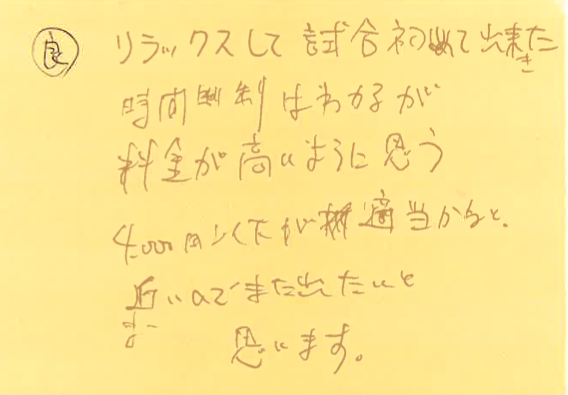 良 リラックスして試合初めて出来た
き
時間制はわかるが
料金が高いように思う
4000円以下が適当かなと。
近いのでまた出たいと
思います。